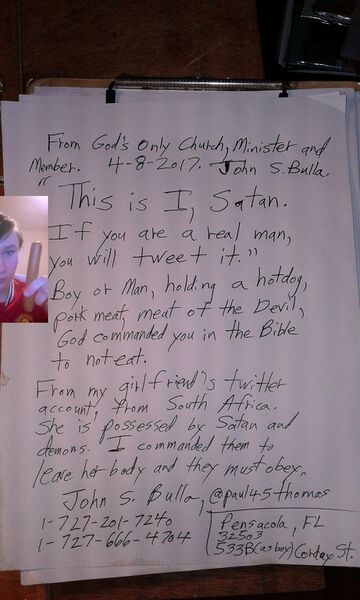 From God's Only Church, Minister and
Member. 4-8-2017. John S. Bulla.
"This is I, Satan.
If you are a real man,
you will tweet it."
Boy or Man, holding a hotdog,
pork meat, meat of the Devil,
God commanded you in the Bible
to not eat.
From my girlfriend's twitter
account, from South Africa.
She is possessed by Satan and
demons. I commanded them to
leave her body and they must obey.
John S. Bulla, @paul45thomas
1-727-201-7240
1-727-666-4704
Pensacola, FL
32503
533B (as boy) Cordax St.